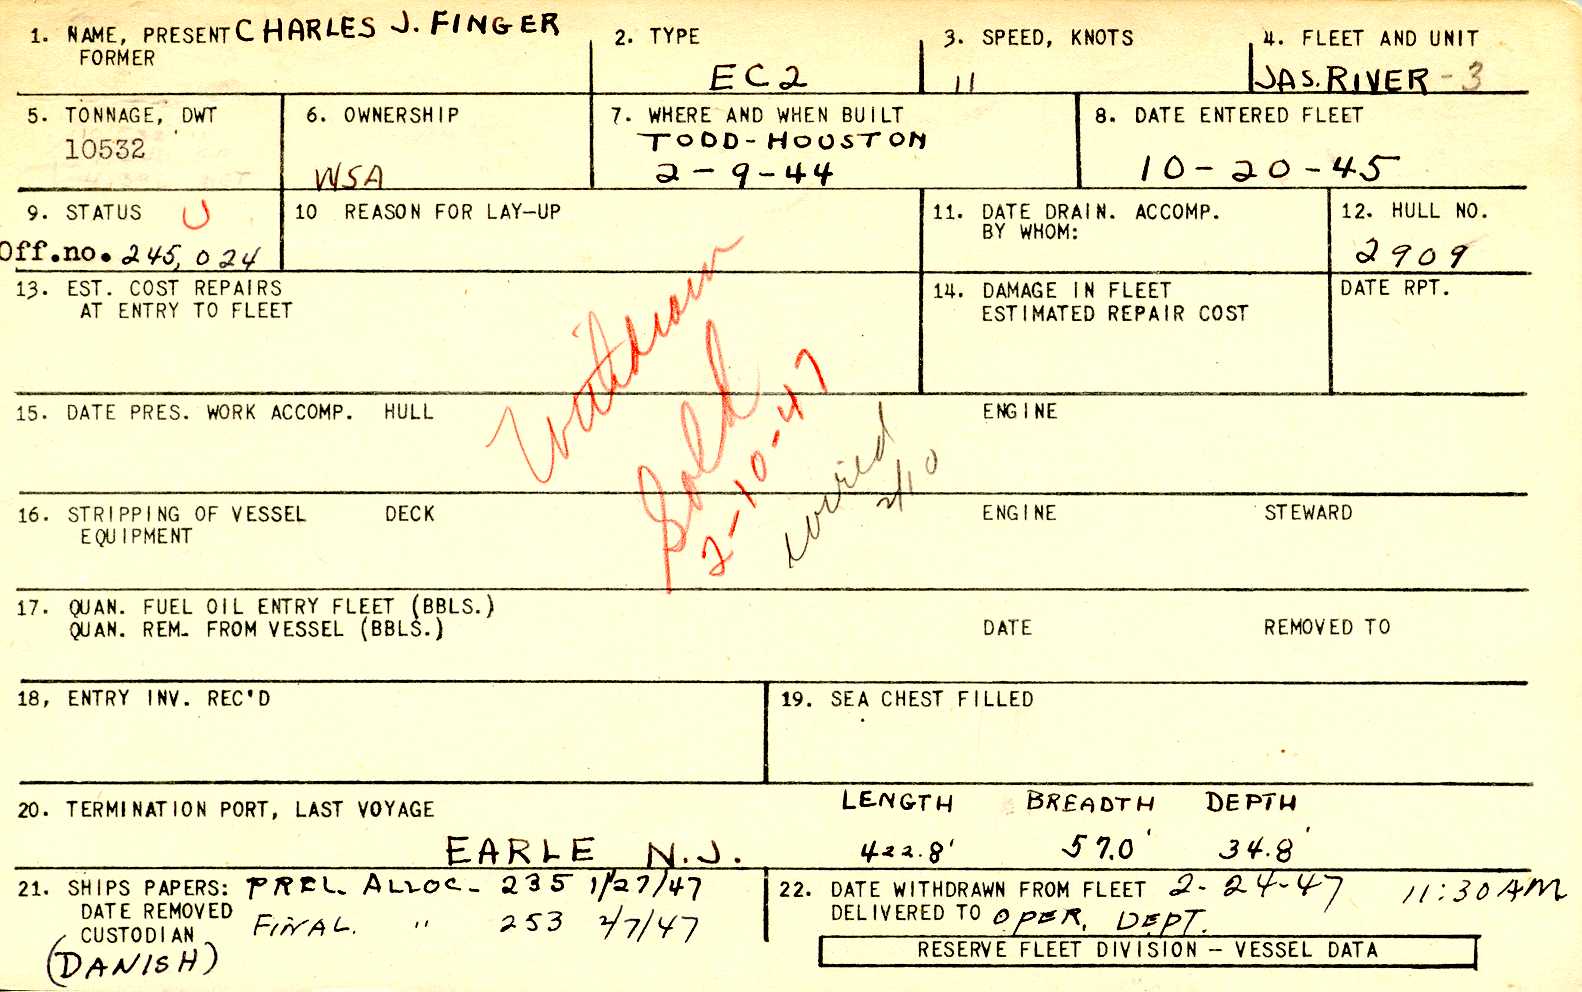 1. NAME, PRESENT CHARLES J. FINGER
FORMER
2. TYPE
EC2
3. SPEED, KNOTS
11
4. FLEET AND UNIT
JAS. RIVER - 3
5. TONNAGE, DWT
10532
6. OWNERSHIP
WSA
7. WHERE AND WHEN BUILT
TODD - HOUSTON
2 - 9 - 44
8. DATE ENTERED FLEET
10 - 20 - 45
9. STATUS U
Off.no. 245,024
10 REASON FOR LAY-UP
11. DATE DRAIN. ACCOMP.
BY WHOM:
12. HULL NO.
2909
13. EST. COST REPAIRS
AT ENTRY TO FLEET
14. DAMAGE IN FLEET
ESTIMATED REPAIR COST
DATE RPT.
Withdrawn
Sold
2-10-47
2/10
15. DATE PRES. WORK ACCOMP. HULL
ENGINE
16. STRIPPING OF VESSEL DECK
EQUIPMENT
ENGINE
STEWARD
17. QUAN. FUEL OIL ENTRY FLEET (BBLS.)
QUAN. REM. FROM VESSEL (BBLS.)
DATE
REMOVED TO
18, ENTRY INV. REC'D
19. SEA CHEST FILLED
20. TERMINATION PORT, LAST VOYAGE
EARLE N.J.
LENGTH BREADTH DEPTH
422.8' 57.0' 34.8'
21. SHIPS PAPERS: PREL. ALLOC. 235 1/27/47
DATE REMOVED FINAL " 253 2/7/47
CUSTODIAN
(DANISH)
22. DATE WITHDRAWN FROM FLEET 2-24-47 11:30 AM
DELIVERED TO OPER. DEPT.
RESERVE FLEET DIVISION – VESSEL DATA